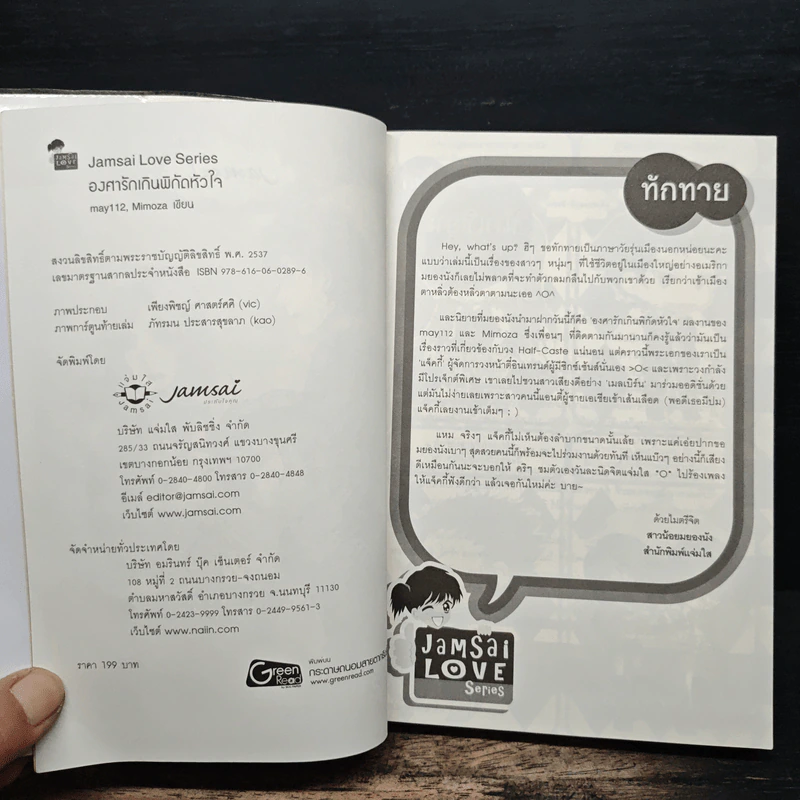 JAMSAI
LOVE
Series
Jamsai Love Series
องศารักเกินพิกัดหัวใจ
may112, Mimoza เขียน
สงวนลิขสิทธิ์ตามพระราชบัญญัติลิขสิทธิ์ พ.ศ. 2537
เลขมาตรฐานสากลประจำหนังสือ ISBN 978-616-06-0289-6
ภาพประกอบ เพียงพิชญ์ ศาสตร์ศศิ (vic)
ภาพการ์ตูนท้ายเล่ม ภัทรมน ประสารสุขลาภ (kao)
จัดพิมพ์โดย
แจ่มใส
JAMSAI
Jamsai
บริษัท แจ่มใส พับลิชชิ่ง จำกัด
285/33 ถนนจรัญสนิทวงศ์ แขวงบางขุนศรี
เขตบางกอกน้อย กรุงเทพฯ 10700
โทรศัพท์ 0-2840-4800 โทรสาร 0-2840-4848
อีเมล์ editor@jamsai.com
เว็บไซต์ www.jamsai.com
จัดจำหน่ายทั่วประเทศโดย
บริษัท อมรินทร์ บุ๊ค เซ็นเตอร์ จำกัด
108 หมู่ที่ 2 ถนนบางกรวย-จงถนอม
ตำบลมหาสวัสดิ์ อำเภอบางกรวย จ.นนทบุรี 11130
โทรศัพท์ 0-2423-9999 โทรสาร 0-2449-9561-3
เว็บไซต์ www.naiin.com
ราคา 199 บาท
Green
Read
พิมพ์บน
กระดาษถนอมสายตากรีน
www.greenread.com
ทักทาย
Hey, what's up? ฮิๆ ขอทักทายเป็นภาษาวัยรุ่นเมืองนอกหน่อยนะคะ
แบบว่าเล่มนี้เป็นเรื่องของสาวๆ หนุ่มๆ ที่ใช้ชีวิตอยู่ในเมืองใหญ่อย่างอเมริกา
มยองนังก็เลยไม่พลาดที่จะทำตัวกลมกลืนไปกับพวกเขาด้วย เรียกว่าเข้าเมือง
ตาหลิ่วต้องหลิ่วตาตามนะเออ ^O^
และนิยายที่มยองนังนำมาฝากวันนี้ก็คือ 'องศารักเกินพิกัดหัวใจ' ผลงานของ
may112 และ Mimoza ซึ่งเพื่อนๆ ที่ติดตามกันมานานก็คงรู้แล้วว่ามันเป็น
เรื่องราวที่เกี่ยวข้องกับวง Half-Caste แน่นอน แต่คราวนี้พระเอกของเราเป็น
'แจ็คกี้' ผู้จัดการวงหน้าตี๋อินเทรนด์ผู้มีซิกซ์เซ้นส์นั่นเอง >O< และเพราะวงกำลัง
มีโปรเจ็กต์พิเศษ เขาเลยไปชวนสาวเสียงดีอย่าง 'เมลเบิร์น' มาร่วมออดิชันด้วย
แต่มันไม่ง่ายเลยเพราะสาวคนนี้แอนตี้ผู้ชายเอเชียเข้าเส้นเลือด (พอดีเธอมีปม)
แจ็คกี้เลยงานเข้าเต็มๆ ; )
แหม จริงๆ แจ็คกี้ไม่เห็นต้องลำบากขนาดนั้นเล้ย เพราะแค่เอ่ยปากขอ
มยองนังเบาๆ สุดสวยคนนี้ก็พร้อมจะไปร่วมงานด้วยทันที เห็นแบ๊วๆ อย่างนี้ก็เสียง
ดีเหมือนกันนะจะบอกให้ คริๆ ชมตัวเองวันละนิดจิตแจ่มใส *O* ไปร้องเพลง
ให้แจ็คกี้ฟังดีกว่า แล้วเจอกันใหม่ค่ะ บาย~
ด้วยไมตรีจิต
สาวน้อยมยองนัง
สำนักพิมพ์แจ่มใส
JAMSAI
LOVE
Series